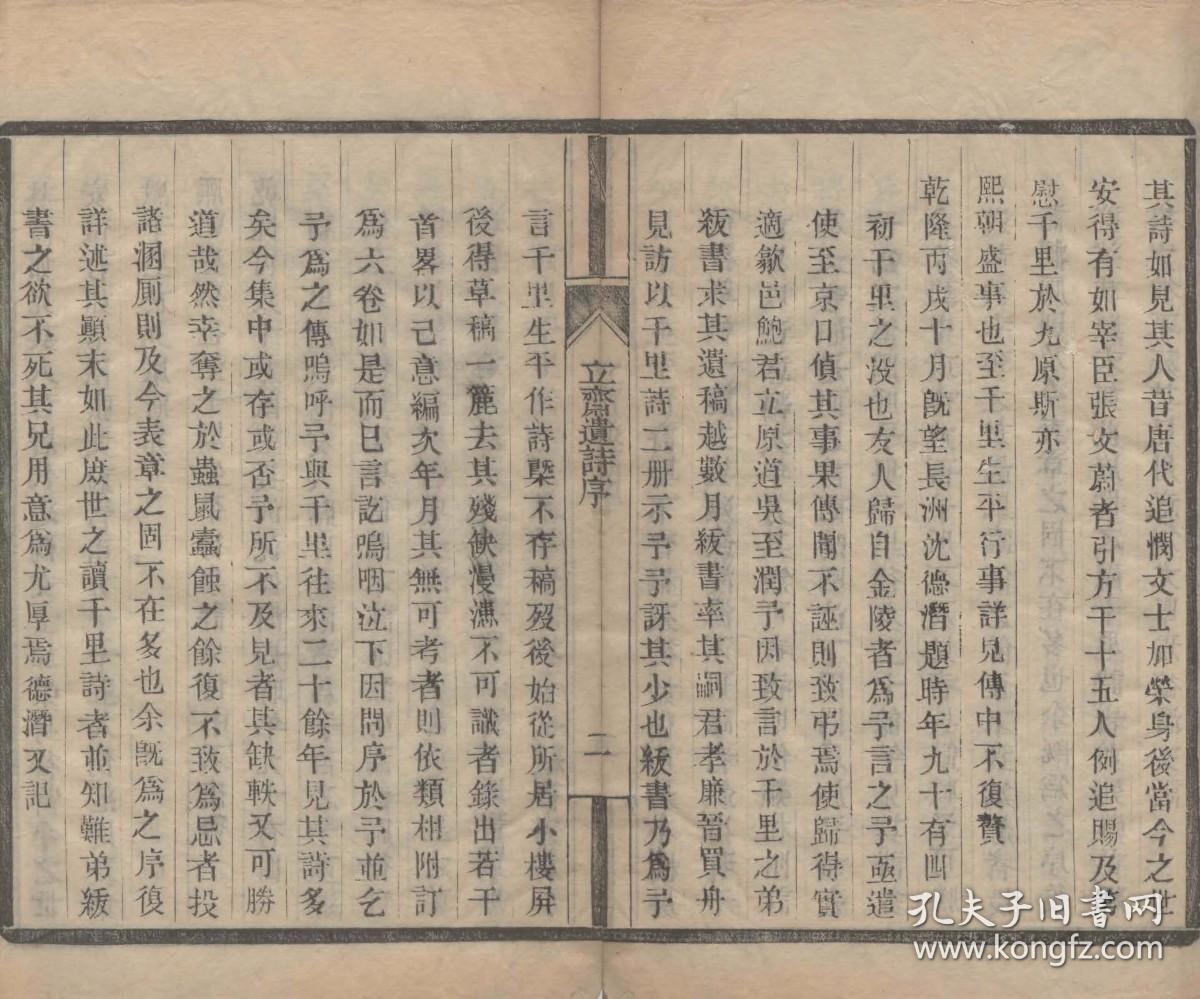 其詩如見其人昔唐代追憫文士加榮身後當今之世
安得有如宰臣張文蔚者引方干十五人例追賜及第
慰千里於九原斯亦
熙朝盛事也至千里生平行事詳見傳中不復贅
乾隆丙戌十月旣望長洲沈德潛題時年九十有四
初千里之没也友人歸自金陵者爲予言之予亟遣
使至京口偵其事果傳聞不誣則致弔焉使歸得實
適歙邑鮑君立原道吳至潤予因致言於千里之弟
紱書求其遺稿越數月紱書率其嗣君孝廉晉買舟
見訪以千里詩二册示予予訝其少也紱書乃爲予
立齋遺詩序
二
言千里生平作詩槩不存稿歿後始從所居小樓屏
後得草稿一簏去其殘缺漫漶不可識者錄出若干
首畧以己意編次年月其無可考者則依類相附訂
爲六卷如是而已言訖嗚咽泣下因問序於予並乞
予爲之傳嗚呼予與千里往來二十餘年見其詩多
矣今集中或存或否予所不及見者其缺軼又可勝
道哉然幸奪之於蟲鼠蠹蝕之餘復不致爲忌者投
諸溷厠則及今表章之固不在多也余旣爲之序復
詳述其顚末如此庶世之讀千里詩者並知難弟紱
書之欲不死其兄用意爲尤厚焉德潛又記
孔夫子旧书网
www.kongfz.com